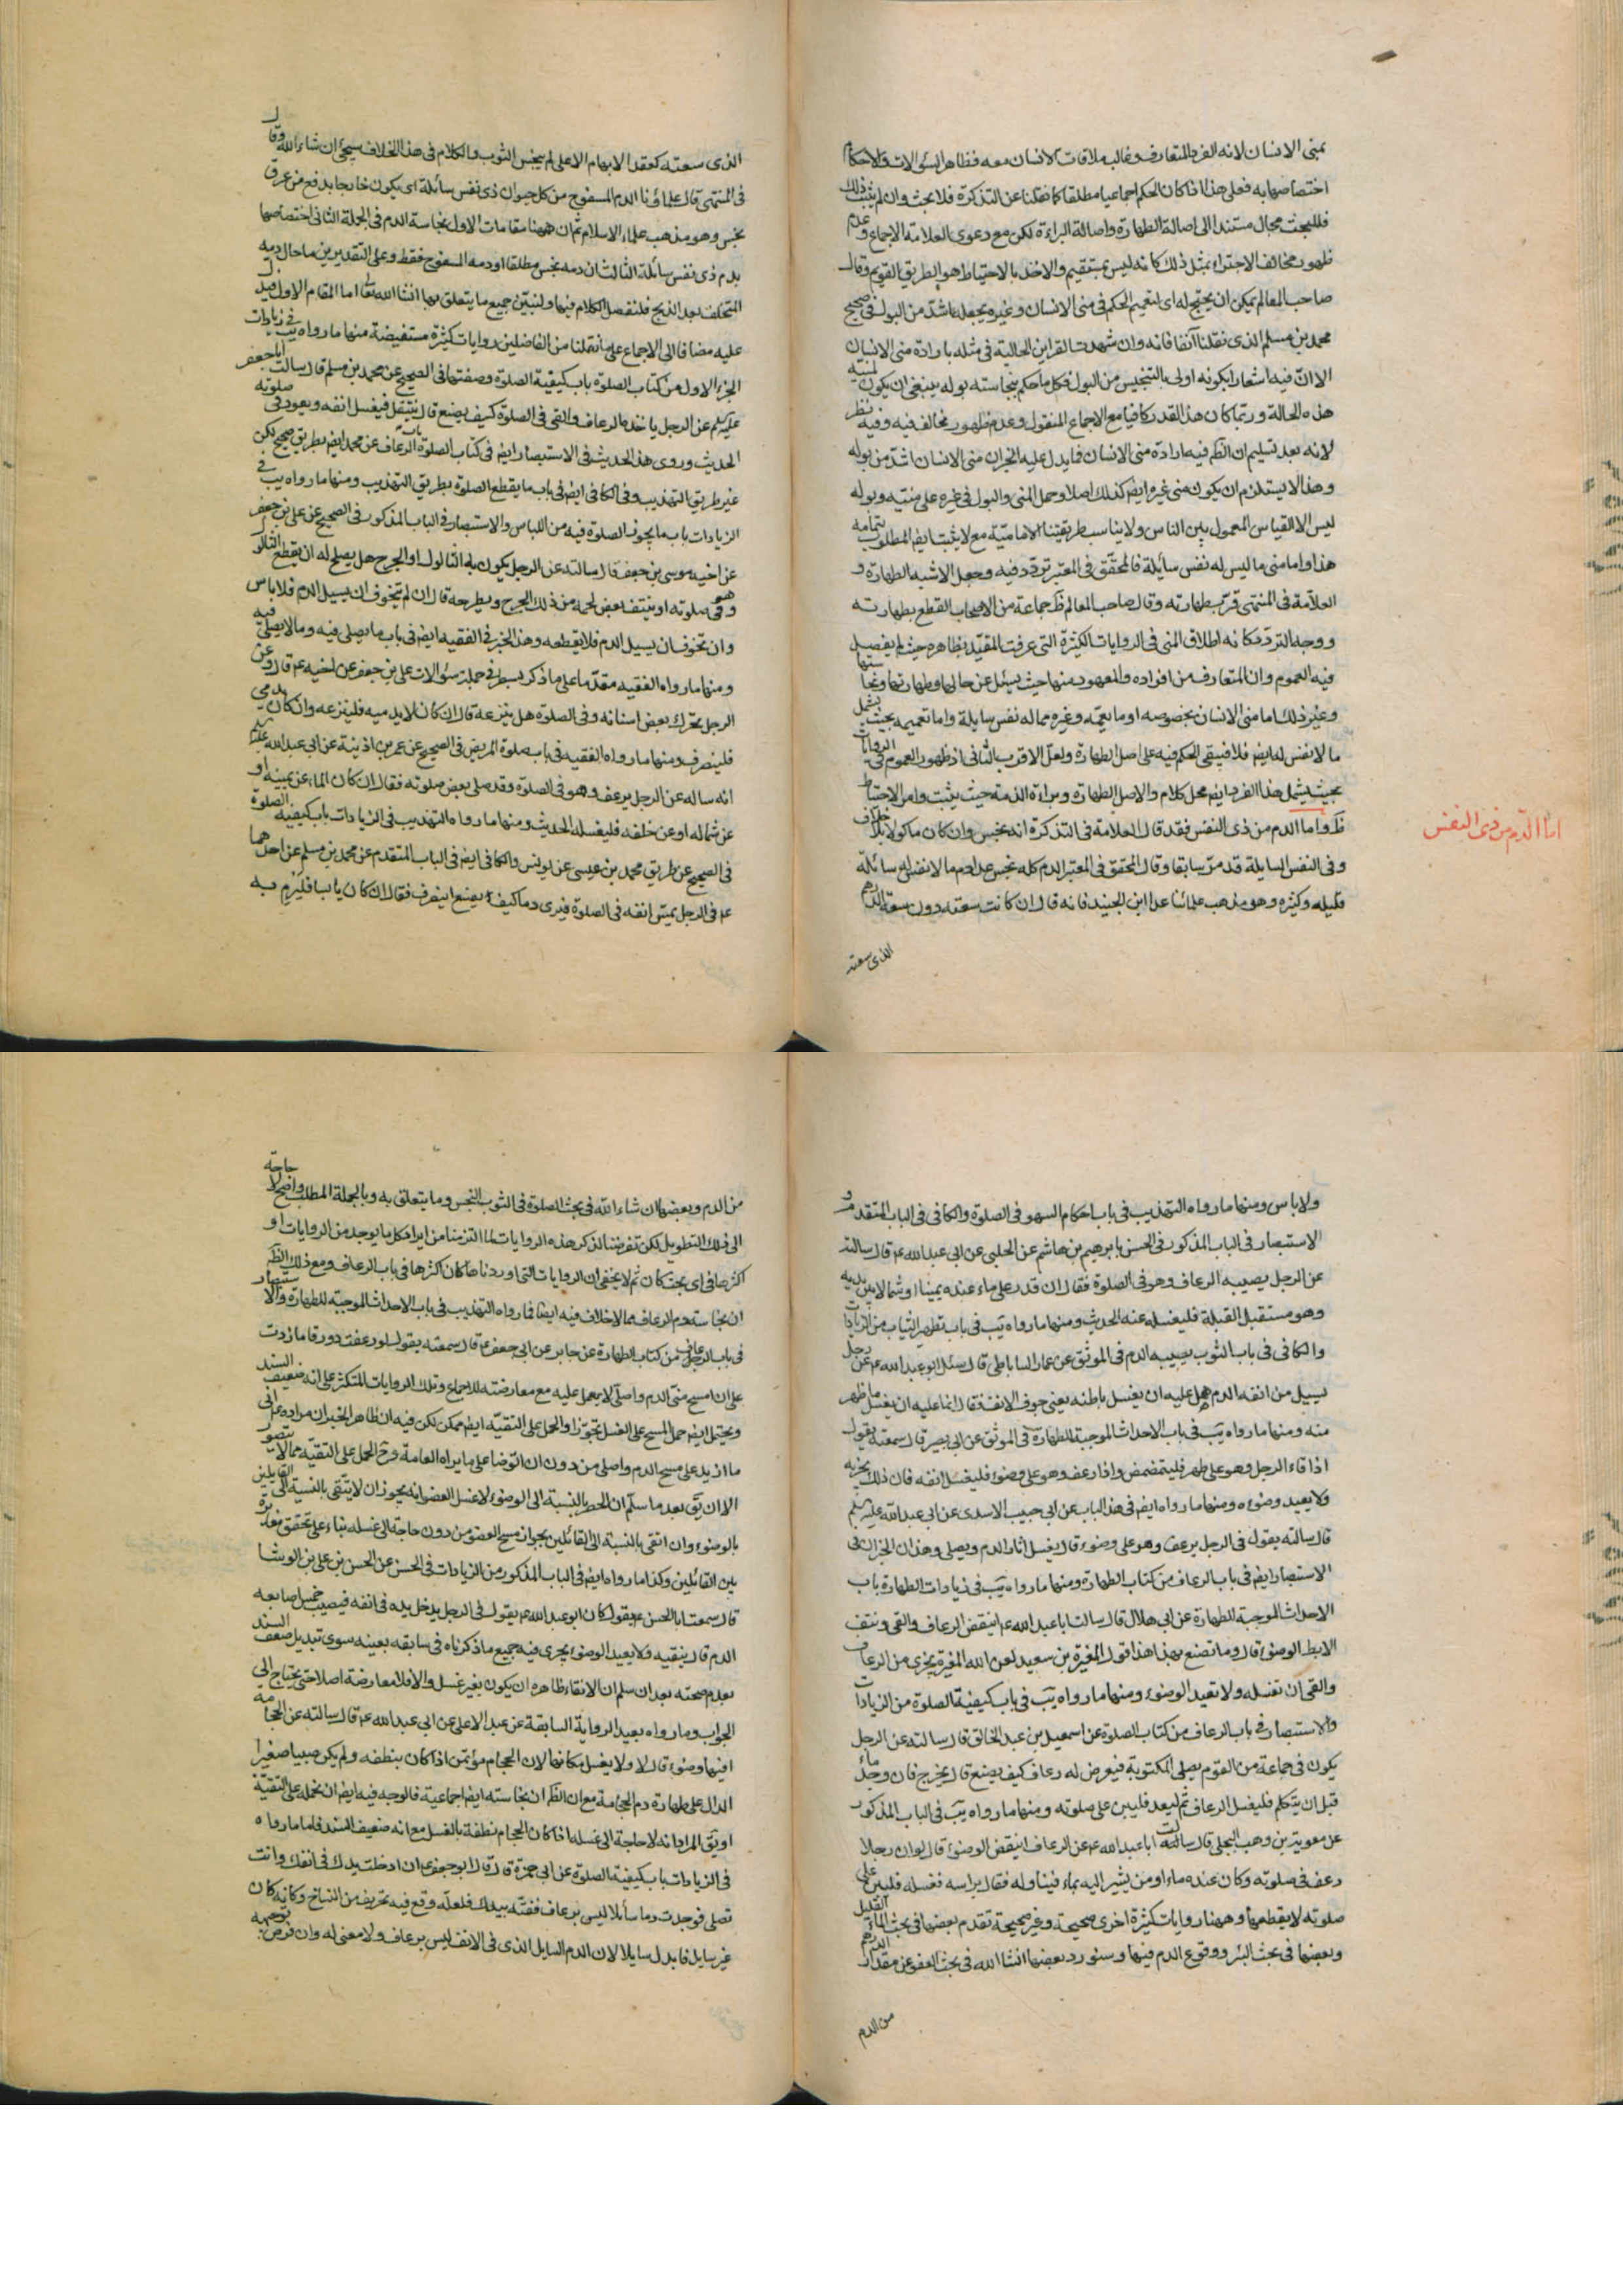 بمنى الانسان لانه الفرد المتعارف وغالب ملاقات الانسان معه فظاهر السؤالات والاحكام
اختصاصها به فعلى هذا اذا كان الحكم اجماعيا مطلقا كما نقلنا عن التذكرة فلا بحث وان لم يثبت ذلك
فللبحث مجال مستندا الى اصالة الطهارة واصالة البراءة لكن مع دعوى العلامة الاجماع وعدم
ظهور مخالف الاجتراء بمثل ذلك كانه ليس بمستقيم والاخذ بالاحتياط هو الطريق القويم وقال
صاحب المعالم يمكن ان يحتج له اى لتعميم الحكم فى منى الانسان وغيره بجعله اشد من البول فى صحيح
محمد بن مسلم الذى نقلنا آنفا فانه وان شهدت القراين الحالية فى مثله بارادة منى الانسان
الا ان فيه اشعارا بكونه اولى بالتنجيس من البول فكل ما حكم بنجاسته بوله ينبغى ان يكون لمنيه
هذه الحالة وربما كان هذا القدر كافيا مع الاجماع المنقول وعدم ظهور مخالف فيه وفيه نظر
لانه بعد تسليم ان الظم فيه ارادة منى الانسان فايدل عليه الخبر ان منى الانسان اشد من بوله
وهذا لا يستلزم ان يكون منى غيره ايض كذلك اصلا وحمل المنى والبول فى غيره على منيه وبوله
ليس الا القياس المعمول بين الناس ولا يناسب طريقتنا الامامية مع لا يثبت ايض المطلوب بتمامه
هذا واما منى ما ليس له نفس سايلة فالمحقق فى المعتبر تردد فيه وجعل الاشبه الطهارة و
العلامة فى المنتهى قرب طهارته وقال صاحب المعالم ظ جماعة من الاصحاب القطع بطهارته
ووجه التردد كانه اطلاق المنى فى الروايات الكثيرة التى عرفت المقيد بظاهره حيث لم يفصل
فيه العموم وان المتعارف من افراده والمعهود منها حيث يسئل عن حالها وطهارتها ونجاستها
وغير ذلك اما منى الانسان بخصوصه او ما يعمه وغيره مما له نفس سايلة واما تعميمه بحيث يشمل
ما لا نفس له ايض فلا فيبقى الحكم فيه على اصل الطهارة ولعل الاقرب الثانى اذ ظهور العموم فى الروايات
بحيث يشمل هذا الفرد ايض محل كلام والاصل الطهارة وبراءة الذمة حيث يثبت وامر الاحتياط
ظ واما الدم من ذى النفس فقد قال العلامة فى التذكرة انه نجس وان كان ماكولا بلا خلاف
وفى النفس السايلة قد مر سابقا وقال المحقق فى المعتبر الدم كله نجس عدا دم ما لا نفس له سائلة
قليله وكثيره وهو مذهب علمائنا عدا ابن الجنيد فانه قال ان كانت سعته دون سعة الدرهم
الذى سعته
اما الدم من ذى النفس
الذى سعته كعقد الابهام الاعلى لم ينجس الثوب والكلام فى هذا الخلاف سيجئ ان شاء الله وقال
فى المنتهى قال علماؤنا الدم المسفوح من كل حيوان ذى نفس سائلة اى يكون خارجا بدفع من عرق
نجس وهو مذهب علماء الاسلام ثم ان ههنا مقامات الاول نجاسة الدم فى الجملة الثانى اختصاصها
بدم ذى نفس سائلة الثالث ان دمه نجس مطلقا او دمه المسفوح فقط وعلى التقديرين ما حال دمه
المتخلف بعد الذبح فلنفصل الكلام فيها ولنبين جميع ما يتعلق بها انشا الله تعا اما المقام الاول فيدل
عليه مضافا الى الاجماع على ما نقلنا من الفاضلين روايات كثيرة مستفيضة منها ما رواه يب فى زيادات
الجزء الاول من كتاب الصلوة باب كيفية الصلوة وصفتها فى الصحيح عن محمد بن مسلم قال سالت ابا جعفر
عليه السلم عن الرجل ياخذه الرعاف والقى فى الصلوة كيف يصنع قال ينتقل فيغسل انفه ويعود فى صلوته
الحديث وروى هذا الحديث فى الاستبصار ايض فى كتاب الصلوة باب الرعاف عن محمد ايض بطريق صحيح لكن
غير طريق التهذيب وفى الكافى ايض فى باب ما يقطع الصلوة بطريق التهذيب ومنها ما رواه يب فى
الزيادات باب ما يجوز الصلوة فيه من اللباس والاستبصار فى الباب المذكور فى الصحيح عن على بن جعفر
عن اخيه موسى بن جعفر قال سالته عن الرجل يكون به الثالول او الجرح هل يصلح له ان يقطع الثالول
وهو فى صلوته او ينتف بعض لحمه من ذلك الجرح ويطرحه قال ان لم يتخوف ان يسيل الدم فلا باس
وان تخوف ان يسيل الدم فلا يقطعه وهذا الخبر فى الفقيه ايض فى باب ما يصلى فيه وما لا يصلى فيه
ومنها ما رواه الفقيه مقدما على ما ذكر بسطر فى جملة سؤالات على بن جعفر عن اخيه ع قال وعن
الرجل تحرك بعض اسنانه وهو فى الصلوة هل ينزعه قال ان كان لا يدميه فلينزعه وان كان يدمى
فلينصرف ومنها ما رواه الفقيه فى باب صلوة المريض فى الصحيح عن عمر بن اذينة عن ابى عبد الله عليه
انه ساله عن الرجل يرعف وهو فى الصلوة وقد صلى بعض صلوته فقال ان كان الماء عن يمينه او
عن شماله او عن خلفه فليغسله الحديث ومنها ما رواه التهذيب فى الزيادات باب كيفية الصلوة
فى الصحيح عن طريق محمد بن عيسى عن يونس والكافى ايض فى الباب المتقدم عن محمد بن مسلم عن احدهما
ع فى الرجل يمس انفه فى الصلوة فيرى دما كيف يصنع اينصرف فقال ان كان يابسا فليرم به
ولا باس ومنها ما رواه التهذيب فى باب احكام السهو فى الصلوة والكافى فى الباب المتقدم و
الاستبصار فى الباب المذكور فى الحسن بابرهيم بن هاشم عن الحلبى عن ابى عبد الله ع قال سالته
عن الرجل يصيبه الرعاف وهو فى الصلوة فقال ان قدر على ماء عنده يمينا او شمالا بين يديه
وهو مستقبل القبلة فليغسله عنه الحديث ومنها ما رواه يب فى باب تطهير الثياب من الزيادات
والكافى فى باب الثوب يصيبه الدم فى الموثق عن عمار الساباطى قال سئل ابو عبد الله ع عن رجل
يسيل من انفه الدم هل عليه ان يغسل باطنه يعنى جوف الانف فقال انما عليه ان يغسل ما ظهر
منه ومنها ما رواه يب فى باب الاحداث الموجبة للطهارة فى الموثق عن ابى بصير قال سمعته يقول
اذا قاء الرجل وهو على طهر فليتمضمض واذا رعف وهو على وضوء فليغسل انفه فان ذلك يجزيه
ولا يعيد وضوءه ومنها ما رواه ايض فى هذا الباب عن ابى حبيب الاسدى عن ابى عبد الله عليه السلم
قال سالته يقول فى الرجل يرعف وهو على وضوء قال يغسل اثار الدم ويصلى وهذان الخبران فى
الاستبصار ايض فى باب الرعاف من كتاب الطهارة ومنها ما رواه يب فى زيادات الطهارة باب
الاحداث الموجبة للطهارة عن ابى هلال قال سالت ابا عبد الله ع اينقض الرعاف والقى ونتف
الابط الوضوء قال وما تصنع بهذا هذا قول المغيرة بن سعيد لعن الله المغيرة يجزى من الرعاف
والقى ان تغسله ولا تعيد الوضوء ومنها ما رواه يب فى باب كيفية الصلوة من الزيادات
والاستبصار فى باب الرعاف من كتاب الصلوة عن اسمعيل بن عبد الخالق قال سالته عن الرجل
يكون فى جماعة من القوم يصلى المكتوبة فيعرض له رعاف كيف يصنع قال يخرج فان وجد ماء
قبل ان يتكلم فليغسل الرعاف ثم ليعد فليبن على صلوته ومنها ما رواه يب فى الباب المذكور
عن معوية بن وهب البجلى قال سالت ابا عبد الله ع عن الرعاف اينقض الوضوء قال لو ان رجلا
رعف فى صلوته وكان عنده ماء او من يشير اليه بماء فيناوله فقال براسه فغسله فليبن على
صلوته لا يقطعها وههنا روايات كثيرة اخرى صحيحة وغير صحيحة تقدم بعضها فى بحث الماء القليل
وبعضها فى بحث البئر ووقوع الدم فيها وسنورد بعضها انشا الله فى بحث العفو عن مقدار الدرهم
من الدم
من الدم وبعضها ان شاء الله فى بحث الصلوة فى الثوب النجس وما يتعلق به وبالجملة المطلب واضح لا حاجة
الى ذلك التطويل لكن تعرضنا لذكر هذه الروايات لما التزمنا من ايراد كل ما يوجد من الروايات او
اكثرها فى اى بحث كان ثم لا يخفى ان الروايات التى اوردناها كان اكثرها فى باب الرعاف ومع ذلك الظم
ان نجاسة دم الرعاف مما لا خلاف فيه ايضا فما رواه التهذيب فى باب الاحداث الموجبة للطهارة والاستبصار
فى باب الرعاف من كتاب الطهارة عن جابر عن ابى جعفر ع قال سمعته يقول لو رعفت دورقا ما زدت
على ان امسح منى الدم واصلى لا يعمل عليه مع معارضته للاجماع وتلك الروايات المتكثر على انه ضعيف السند
ويحتمل ايض حمل المسح على الغسل تجوزا والحمل على التقية ايض ممكن لكن فيه ان ظاهر الخبر ان مراده ع انى
ما ازيد على مسح الدم واصلى من دون ان اتوضا على ما يراه العامة وح الحمل على التقية مما لا يتصور
الا ان يق بعد ما سلم ان الحصر بالنسبة الى الوضوء لا غسل العضو انه يجوز ان لا يتقى بالنسبة الى القايلين
بالوضوء وان اتقى بالنسبة الى القائلين بجواز مسح العضو من دون حاجة الى غسله بناء على تحقق
بين القائلين وكذا ما رواه ايض فى الباب المذكور من الزيادات فى الحسن عن الحسن بن على بن الوشا
قال سمعت ابا الحسن ع يقول كان ابو عبد الله ع يقول فى الرجل يدخل يده فى انفه فيصيب خمس اصابعه
الدم قال ينقيه ولا يعيد الوضوء يجرى فيه جميع ما ذكرناه فى سابقه بعينه سوى تبديل ضعف السند
بعدم صحته بعد ان سلم ان الانقاء ظاهره ان يكون بغير غسل والا فلا معارضة اصلا حتى يحتاج الى
الجواب وما رواه بعيد الرواية السابقة عن عبد الاعلى عن ابى عبد الله ع قال سالته عن الحجامة
افيها وضوء قال لا ولا يغسل مكانها لان الحجام مؤتمن اذا كان ينظفه ولم يكن صبيا صغيرا
الدال على طهارة دم الحجامة مع ان الظم ان نجاسته ايض اجماعية فالوجه فيه ايض ان نحمله على التقية
او يق المراد انه لا حاجة الى غسله اذا كان الحجام نظفه بالغسل مع انه ضعيف السند فاما ما رواه
فى الزيادات باب كيفية الصلوة عن ابى حمزة قال قال ابو جعفر ع ان ادخلت يدك فى انفك وانت
تصلى فوجدت دما سائلا ليس برعاف ففته بيدك فلعله وقع فيه تحريف من النساخ وكانه كان
غير سايل فابدل سايلا لان الدم السايل الذى فى الانف ليس برعاف ولا معنى له وان فرض توجيهه